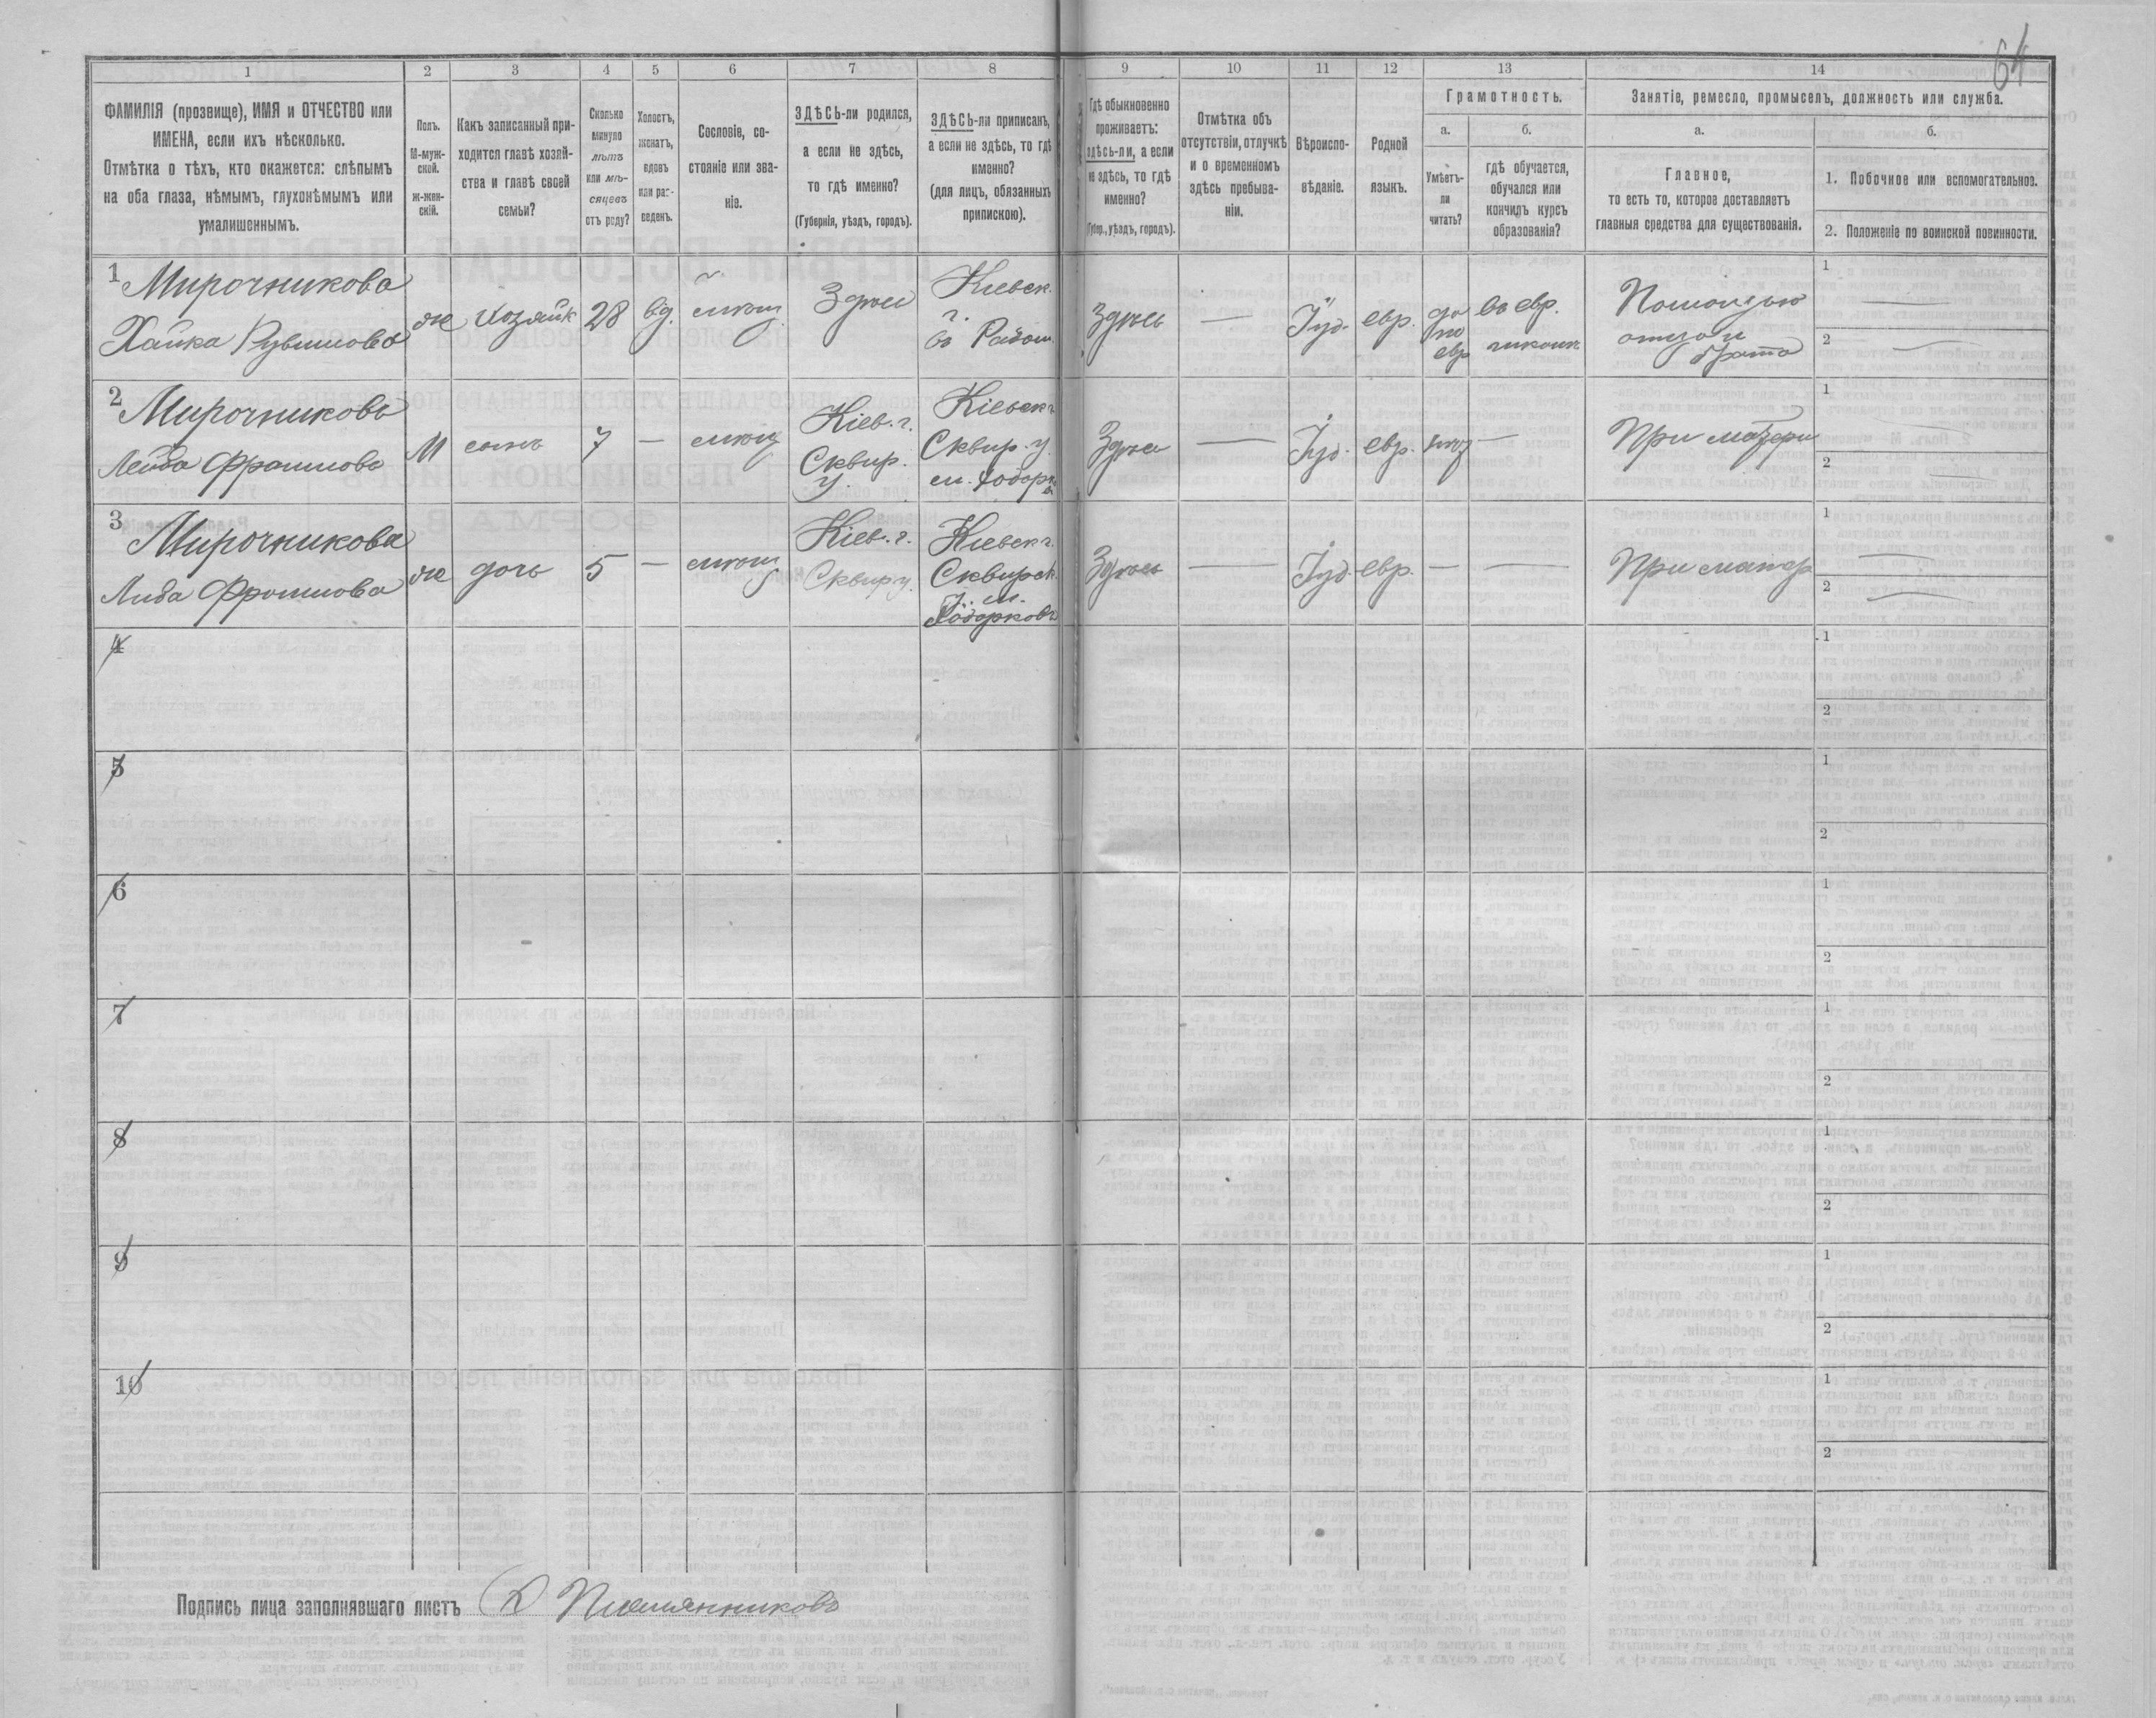 64
1 2 3 4 5 6 7 8 9 10 11 12 13 14
ФАМИЛІЯ (прозвище), ИМЯ и ОТЧЕСТВО или
ИМЕНА, если ихъ нѣсколько.
Отмѣтка о тѣхъ, кто окажется: слѣпымъ
на оба глаза, нѣмымъ, глухонѣмымъ или
умалишеннымъ.
Полъ.
М-муж-
ской.
ж-жен-
скій.
Какъ записанный при-
ходится главѣ хозяй-
ства и главѣ своей
семьи?
Сколько
минуло
лѣтъ
или мѣ-
сяцевъ
отъ роду?
Холостъ,
женатъ,
вдовъ
или раз-
веденъ.
Сословіе, со-
стояніе или зва-
ніе.
ЗДѢСЬ-ли родился,
а если не здѣсь,
то гдѣ именно?
(Губернія, уѣздъ, городъ).
ЗДѢСЬ-ли приписанъ,
а если не здѣсь, то гдѣ
именно?
(для лицъ, обязанныхъ
припискою).
Гдѣ обыкновенно
проживаетъ:
здѣсь-ли, а если
не здѣсь, то гдѣ
именно?
(Губер., уѣздъ, городъ).
Отмѣтка объ
отсутствіи, отлучкѣ
и о временномъ
здѣсь пребыва-
ніи.
Вѣроиспо-
вѣданіе.
Родной
языкъ.
Грамотность.
а.
Умѣетъ-
ли
читать?
б.
гдѣ обучается,
обучался или
кончилъ курсъ
образованія?
Занятіе, ремесло, промыселъ, должность или служба.
а.
Главное,
то есть то, которое доставляетъ
главныя средства для существованія.
б.
1. Побочное или вспомогательное.
2. Положеніе по воинской повинности.
1 Мирочникова
Хайка Рувимова
же хозяйк 28 вд. мѣщ Здѣсь
Кіевск.
г.
Здѣсь — Іуд. евр.
да
по
евр
въ евр.
Помощью
отца и
брата
1 —
2 —
2 Мирочниковъ
Лейба Фроимовъ
М сынъ 7 — мѣщ
Кіев. г.
Сквир.
у.
Кіевск г.
Сквир. у.
Здѣсь — Іуд. евр. —
При матери
1
2
3 Мирочникова
Либа Фроимова
же дочь 5 — мѣщ
Кіев. г.
Сквир у.
Кіевск г.
Сквирск.
у. м.
Ходорковъ
Здѣсь — Іуд. евр. — —
При матер
1 —
2 —
4
1
2
5
1
2
6
1
2
7
1
2
8
1
2
9
1
2
10
1
2
Подпись лица заполнявшаго листъ